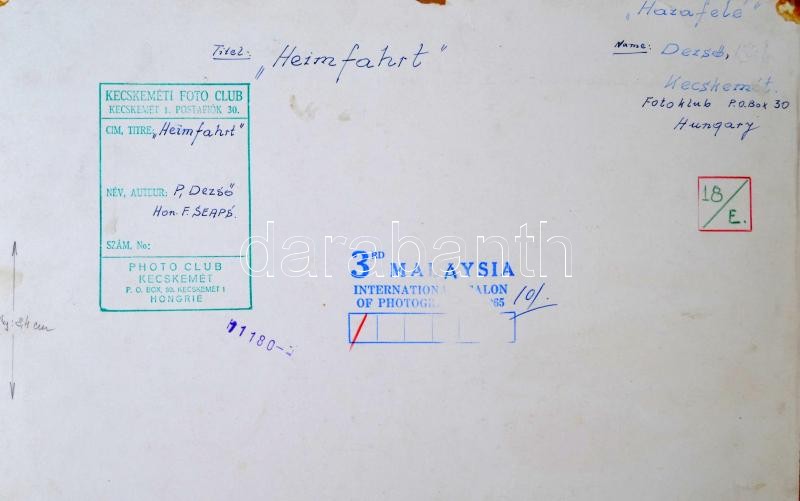 „Hazafelé"
Titel: „Heimfahrt"
Name: Dezső,
Kecskemét.
Fotoklub P.O.Box 30
Hungary
KECSKEMÉTI FOTO CLUB
KECSKEMÉT 1. POSTAFIÓK 30.
CIM, TITRE: „Heimfahrt"
NÉV, AUTEUR: P, Dezső
Hon. F. ŠEAPS.
SZÁM. No:
PHOTO CLUB
KECSKEMÉT
P. O. BOX, 30. KECSKEMÉT 1
HONGRIE
18/E.
darabanth
3RD MALAYSIA
INTERNATIONAL SALON
OF 65
101.
11180-
24 cm